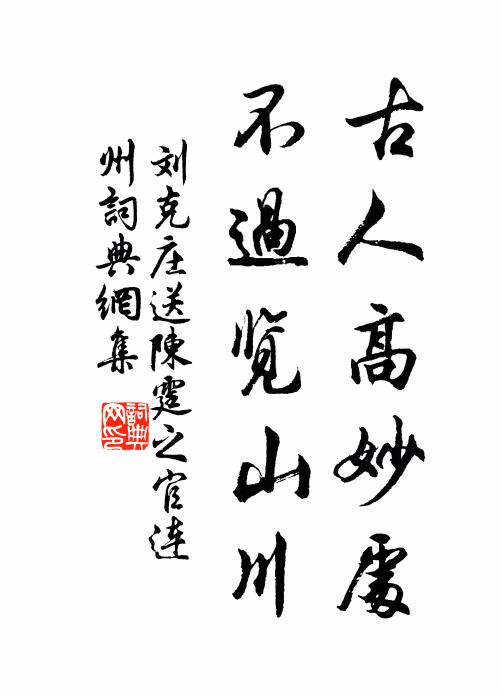 古人高妙處
不過览山川
刘克庄送陳霆之官连
州詞典網集
詞典
网印